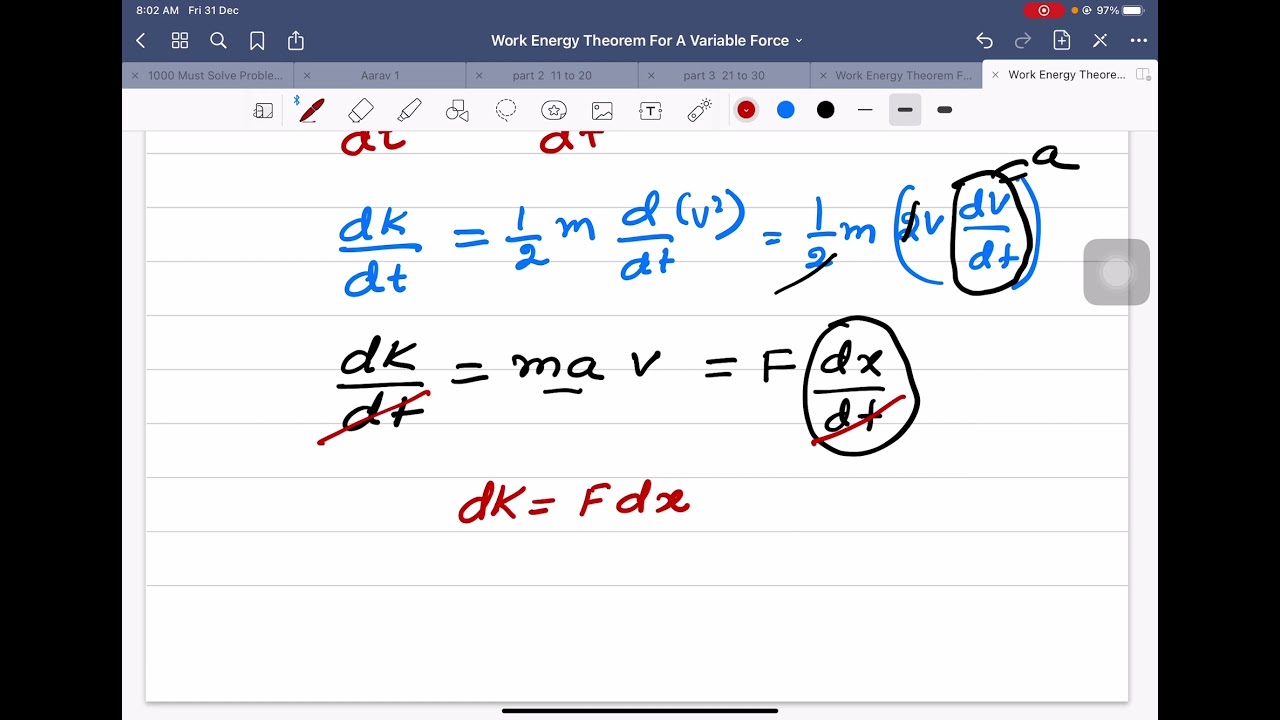 8:02 AM Fri 31 Dec 97%
Work Energy Theorem For A Variable Force
1000 Must Solve Proble... Aarav 1 part 2 11 to 20 part 3 21 to 30 Work Energy Theorem F... Work Energy Theore...
dt dt
a
dK/dt = 1/2 m d/dt (v²) = 1/2 m (2v dv/dt)
dK/dt = ma v = F dx/dt
dK = F dx